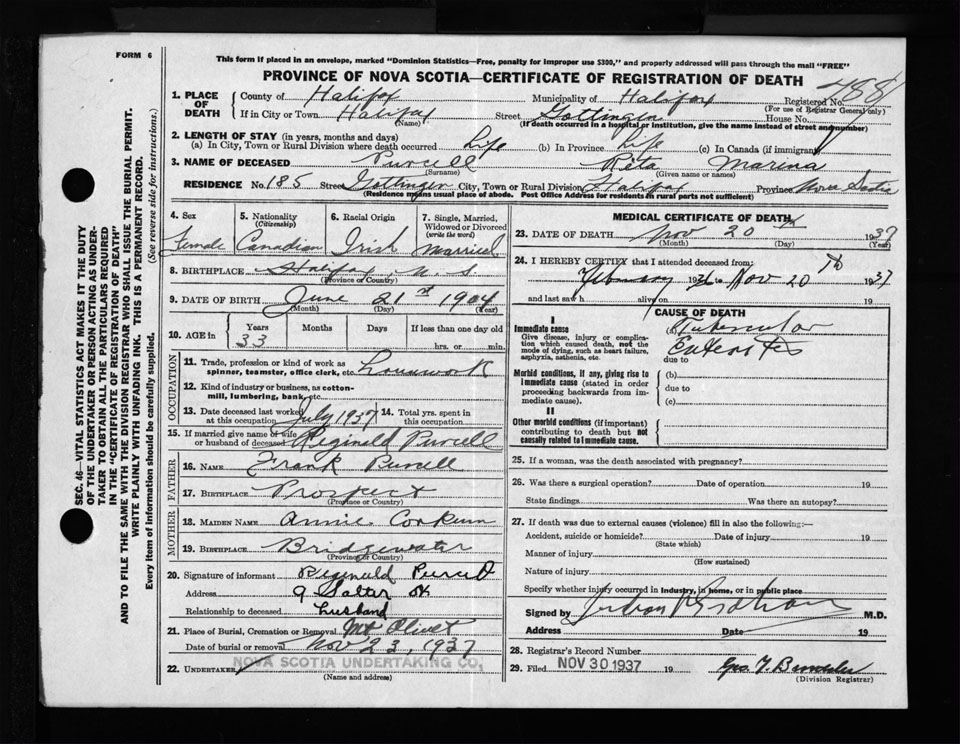 FORM 6
This form if placed in an envelope, marked "Dominion Statistics—Free, penalty for improper use $300," and properly addressed will pass through the mail "FREE"
PROVINCE OF NOVA SCOTIA—CERTIFICATE OF REGISTRATION OF DEATH
SEC. 46—VITAL STATISTICS ACT MAKES IT THE DUTY
OF THE UNDERTAKER OR PERSON ACTING AS UNDER-
TAKER TO OBTAIN ALL THE PARTICULARS REQUIRED
IN THE "CERTIFICATE OF REGISTRATION OF DEATH"
AND TO FILE THE SAME WITH THE DIVISION REGISTRAR WHO SHALL ISSUE THE BURIAL PERMIT.
WRITE PLAINLY WITH UNFADING INK. THIS IS A PERMANENT RECORD.
Every item of information should be carefully supplied. (See reverse side for instructions.)
1. PLACE OF DEATH County of Halifax Municipality of Halifax Registered No. 488
(For use of Registrar General only)
If in City or Town Halifax Street Gottingen House No.
(Name) (If death occurred in a hospital or institution, give the name instead of street and number)
2. LENGTH OF STAY (in years, months and days)
(a) In City, Town or Rural Division where death occurred Life (b) In Province Life (c) In Canada (if immigrant)
3. NAME OF DECEASED Purcell Rita Marina
(Surname) (Given name or names)
RESIDENCE No. 185 Street Gottingen City, Town or Rural Division Halifax Province Nova Scotia
(Residence means usual place of abode. Post Office Address for residents in rural parts not sufficient)
4. Sex 5. Nationality (Citizenship) 6. Racial Origin 7. Single, Married, Widowed or Divorced (write the word)
Female Canadian Irish Married
8. BIRTHPLACE Halifax, N. S.
(Province or Country)
9. DATE OF BIRTH June 21st 1904
(Month) (Day) (Year)
10. AGE in Years Months Days If less than one day old
33 hrs. or min.
OCCUPATION
11. Trade, profession or kind of work as spinner, teamster, office clerk, etc. Housework
12. Kind of industry or business, as cotton-mill, lumbering, bank, etc.
13. Date deceased last worked at this occupation July 1937 14. Total yrs. spent in this occupation
15. If married give name of wife or husband of deceased Reginald Purcell
FATHER
16. NAME Frank Purcell
17. BIRTHPLACE Prospect
(Province or Country)
MOTHER
18. MAIDEN NAME Annie Corkum
19. BIRTHPLACE Bridgewater
(Province or Country)
20. Signature of informant Reginald Purcell
Address 9 Salter St
Relationship to deceased husband
21. Place of Burial, Cremation or Removal Mt Olivet
Date of burial or removal Nov 23, 1937
22. UNDERTAKER NOVA SCOTIA UNDERTAKING CO.
(Name and address)
MEDICAL CERTIFICATE OF DEATH
23. DATE OF DEATH Nov 20th 1937
(Month) (Day) (Year)
24. I HEREBY CERTIFY that I attended deceased from:
February 19 to Nov 20th 1937
and last saw h alive on 19
CAUSE OF DEATH
I
Immediate cause (a) Tubercular
Give disease, injury or complication which caused death, not the mode of dying, such as heart failure, asphyxia, asthenia, etc. Enteritis
due to
Morbid conditions, if any, giving rise to immediate cause (stated in order proceeding backwards from immediate cause). (b)
due to
(c)
II
Other morbid conditions (if important) contributing to death but not causally related to immediate cause.
25. If a woman, was the death associated with pregnancy?
26. Was there a surgical operation? Date of operation 19
State findings Was there an autopsy?
27. If death was due to external causes (violence) fill in also the following:—
Accident, suicide or homicide? Date of injury 19
(State which)
Manner of injury
(How sustained)
Nature of injury
Specify whether injury occurred in industry, in home, or in public place
Signed by M.D.
Address Date 19
28. Registrar's Record Number
29. Filed NOV 30 1937 19
(Division Registrar)